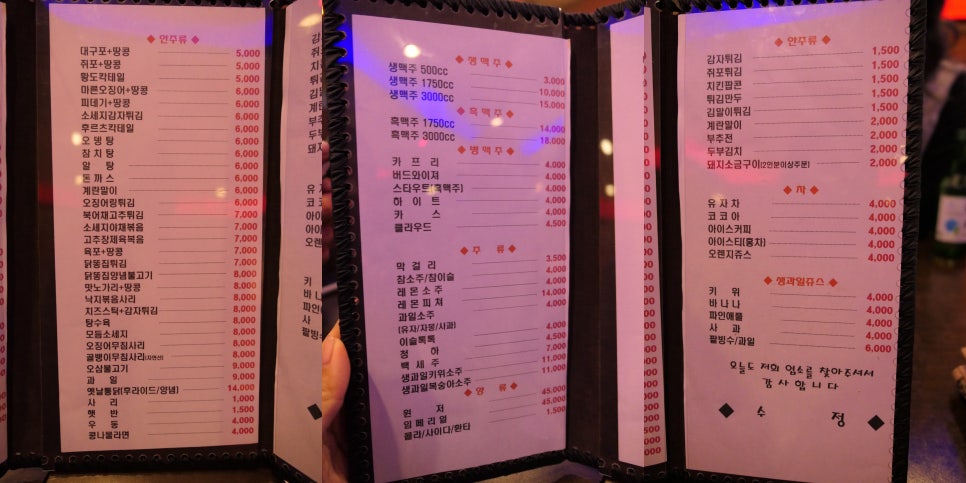 ◆ 안주류 ◆
대구포+땅콩 5,000
쥐포+땅콩 5,000
황도칵테일 5,000
마른오징어+땅콩 6,000
피데기+땅콩 6,000
소세지감자튀김 6,000
후르츠칵테일 6,000
오 뎅 탕 6,000
참 치 탕 6,000
알 탕 6,000
돈 까 스 6,000
계란말이 6,000
오징어링튀김 6,000
북어채고추튀김 7,000
소세지야채볶음 7,000
고추장제육볶음 7,000
육포+땅콩 7,000
닭똥집튀김 7,000
닭똥집양념불고기 8,000
맛노가리+땅콩 8,000
낙지볶음사리 8,000
치즈스틱+감자튀김 8,000
탕수육 8,000
모듬소세지 8,000
오징어무침사리 8,000
골뱅이무침사리(자연산) 8,000
오삼불고기 9,000
과 일 9,000
옛날통닭(후라이드/양념) 14,000
사 리 1,000
햇 반 1,500
우 동 4,000
콩나물라면 4,000
◆ 생맥주 ◆
생맥주 500cc 3,000
생맥주 1750cc 10,000
생맥주 3000cc 15,000
◆ 흑맥주 ◆
흑맥주 1750cc 14,000
흑맥주 3000cc 18,000
◆ 병맥주 ◆
카 프 리 4,000
버드와이져 4,000
스타우트(흑맥주) 4,000
하 이 트 4,000
카 스 4,000
클라우드 4,500
◆ 주 류 ◆
막 걸 리 3,500
참소주/참이슬 4,000
레몬소주 14,000
레몬피쳐 4,000
과일소주
(유자/자몽/사과)
이슬톡톡 4,500
청 하 7,000
백 세 주 11,000
생과일키위소주 11,000
생과일복숭아소주
◆ 양 류 ◆
원 저 45,000
임페리얼 45,000
콜라/사이다/환타 1,500
◆ 안주류 ◆
감자튀김 1,500
쥐포튀김 1,500
치킨팝콘 1,500
튀김만두 1,500
김말이튀김 1,500
계란말이 2,000
부추전 2,000
두부김치 2,000
돼지소금구이(2인분이상주문) 2,000
◆ 차 ◆
유 자 차 4,000
코 코 아 4,000
아이스커피 4,000
아이스티(홍차) 4,000
오렌지쥬스 4,000
◆ 생과일쥬스 ◆
키 위 4,000
바 나 나 4,000
파인애플 4,000
사 과 4,000
팥빙수/과일 6,000
오늘도 저희 업소를 찾아주셔서
감 사 합 니 다
◆ 수 정 ◆